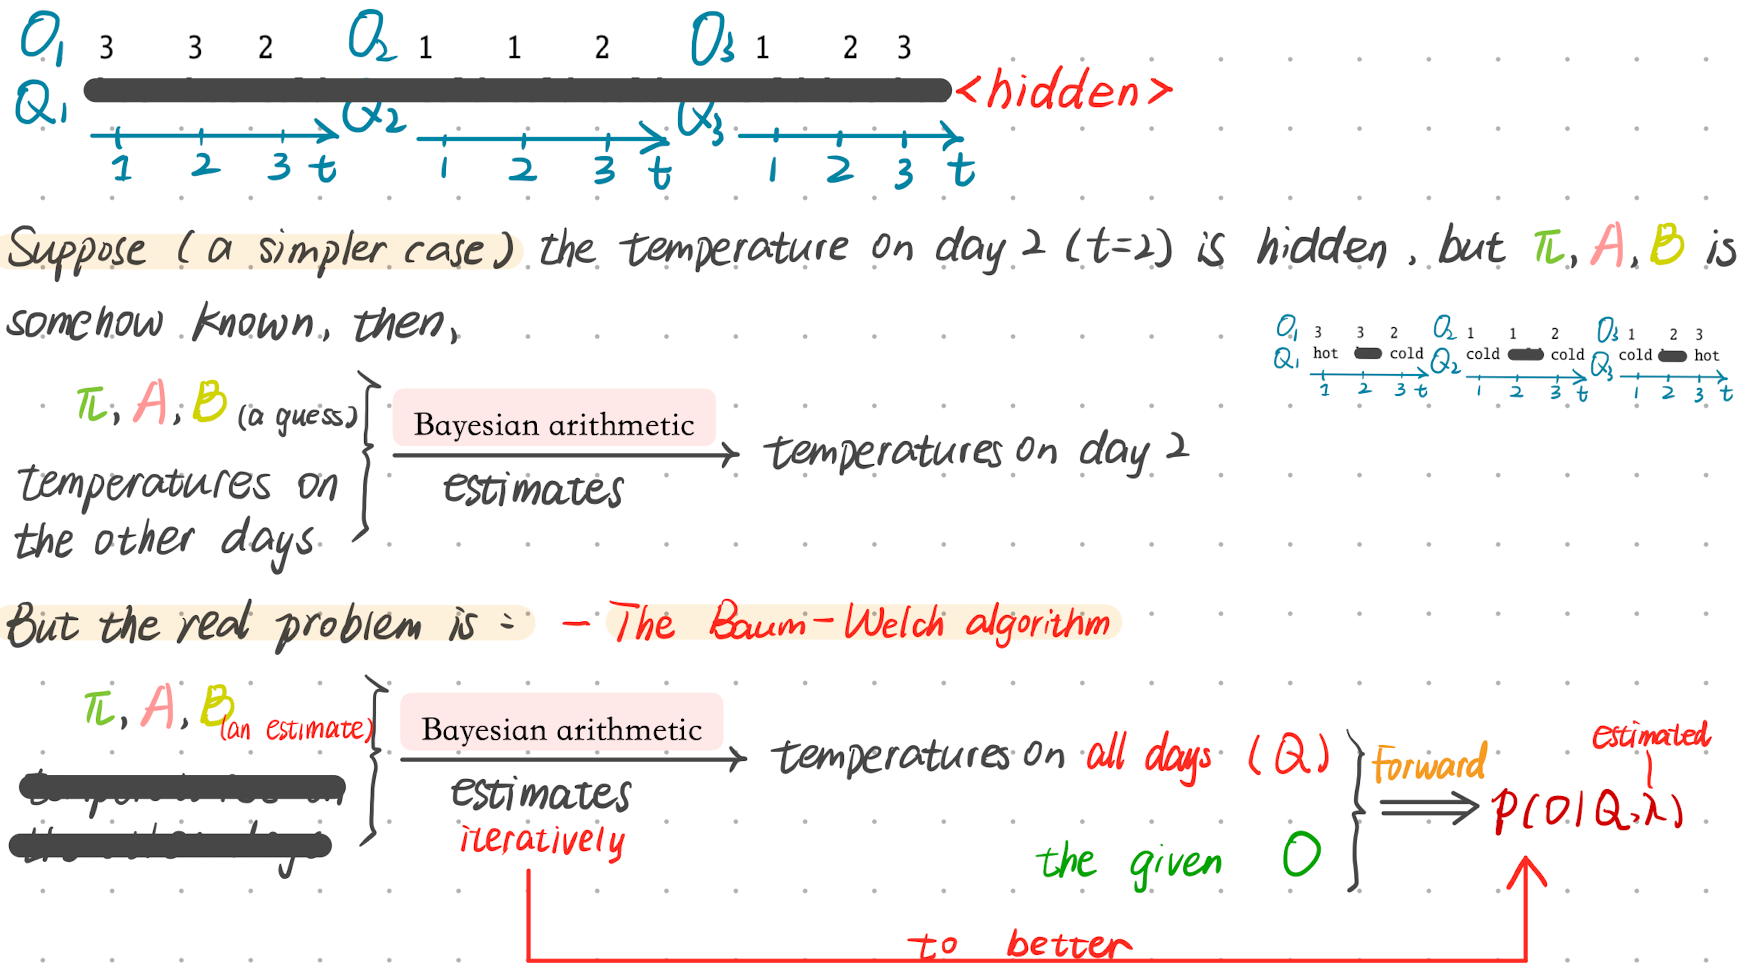 O1 3 3 2 O2 1 1 2 O3 1 2 3
Q1 Q2 Q3 <hidden>
1 2 3 t 1 2 3 t 1 2 3 t
Suppose (a simpler case) the temperature on day 2 (t=2) is hidden, but π, A, B is
somehow known, then,
O1 3 3 2 O2 1 1 2 O3 1 2 3
Q1 hot cold Q2 cold cold Q3 cold hot
1 2 3 t 1 2 3 t 1 2 3 t
π, A, B (a guess)
temperatures on
the other days
Bayesian arithmetic
estimates
temperatures on day 2
But the real problem is: - The Baum-Welch algorithm
π, A, B (an estimate)
Bayesian arithmetic
estimates
iteratively
temperatures on all days (Q)
the given O
Forward
estimated
P(O|Q,λ)
to better